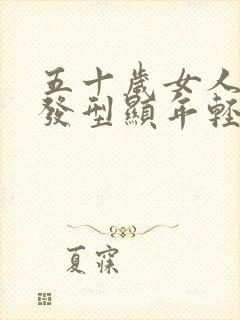 五十歲女人
發型顯年輕
夏寐